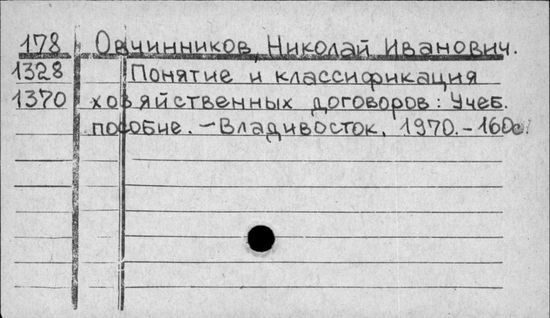 178 Овчинников, Николай Иванович.
1328 Понятие и классификация
1370 хозяйственных договоров: Учеб.
пособие. – Владивосток, 1970. – 160с.